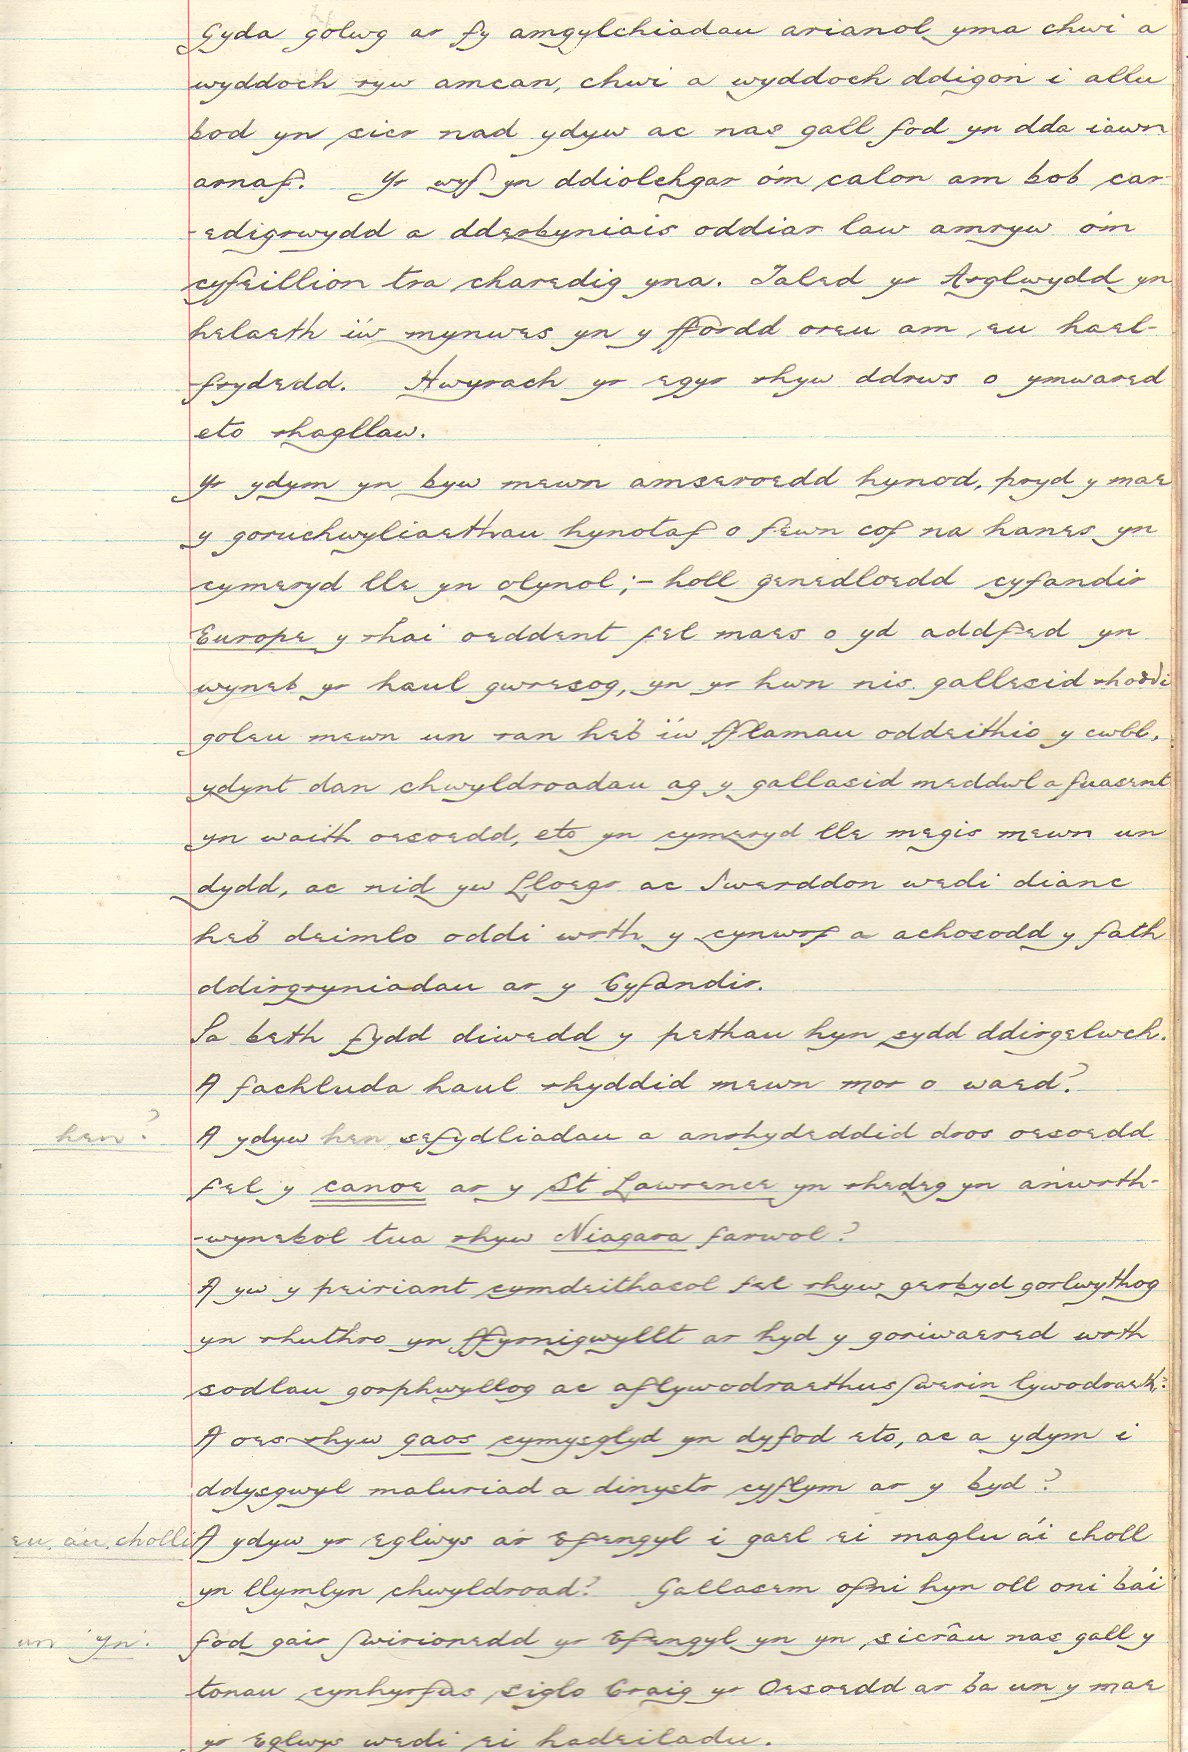 Gyda golwg ar fy amgylchiadau arianol yma chwi a
wyddoch ryw amcan, chwi a wyddoch ddigon i allu
bod yn sicr nad ydyw ac nas gall fod yn dda iawn
arnaf. Yr wyf yn ddiolchgar o'm calon am bob car-
-edigrwydd a dderbyniais oddiar law amryw o'm
cyfeillion tra charedig yna. Taled yr Arglwydd yn
helaeth i'w mynwes yn y ffordd oreu am eu hael-
frydedd. Hwyrach yr egyr rhyw ddrws o ymwared
eto rhagllaw.
Yr ydym yn byw mewn amseroedd hynod, pryd y mae
y goruchwyliaethau hynotaf o fewn cof na hanes yn
cymeryd lle yn olynol;- holl genedloedd cyfandir
Europe y rhai oeddent fel maes o yd addfed yn
wyneb yr haul gwresog, yn yr hwn nis gallesid rhoddi
goleu mewn un ran heb i'w fflamau oddeithio y cwbl,
ydynt dan chwyldroadau ag y gallasid meddwl a fuasent
yn waith oesoedd, eto yn cymeryd lle megis mewn un
dydd, ac nid yw Lloegr ac Iwerddon wedi dianc
heb deimlo oddi wrth y cynwrf a achosodd y fath
ddirgryniadau ar y Cyfandir.
Pa beth fydd diwedd y pethau hyn sydd ddirgelwch.
A fachluda haul rhyddid mewn mor o waed?
hen? A ydyw hen sefydliadau a anrhydeddid dros oesoedd
fel y canoe ar y St Lawrence yn rhedeg yn anwrth-
-wynebol tua rhyw Niagara farwol?
A yw y peiriant cymdeithasol fel rhyw gerbyd gorlwythog
yn rhuthro yn ffyrnigwyllt ar hyd y goriwaered wrth
sodlau gorphwyllog ac aflywodraethus werin lywodraeth?
A oes rhyw gaos cymysglyd yn dyfod eto, ac a ydym i
ddysgwyl maluriad a dinystr cyflym ar y byd?
eu, a'u, cholli A ydyw yr eglwys a'r Efengyl i gael ei maglu a'i choll
yn llymlyn chwyldroad? Gallasem ofni hyn oll oni ba'i
un 'yn'. fod gair gwirionedd yr Efengyl yn yn sicrâu nas gall y
tonau cynhyrfus siglo Craig yr Oesoedd ar ba un y mae
yr Eglwys wedi ei hadeiladu.